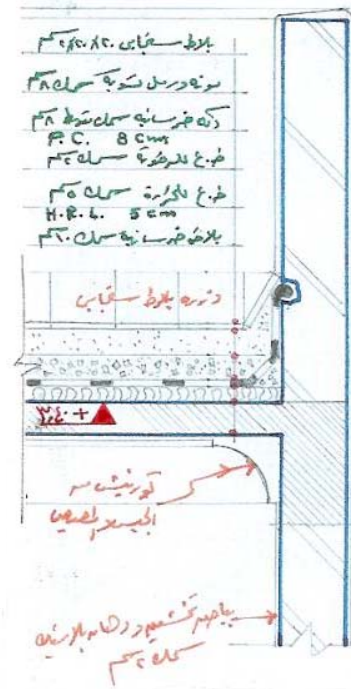 بلاط سنجابى ٢٠x٢٠x٢سم
مونه ورمل تسويه سمك ٨سم
دكه خرسانيه سمك متوسط ٨سم
P.C. 8 cm
ط.ع للرطوبة سمك ٢سم
ط.ع للحرارة سمك ٥سم
H.R.L. 5 cm
بلاطه خرسانيه سمك ١٠سم
وزره بلاط سنجابى
+ ٣,٤٠
كورنيش من
الجبس و المصيص
بياض تخشين ودهان بلاستيك
سمك ٢سم